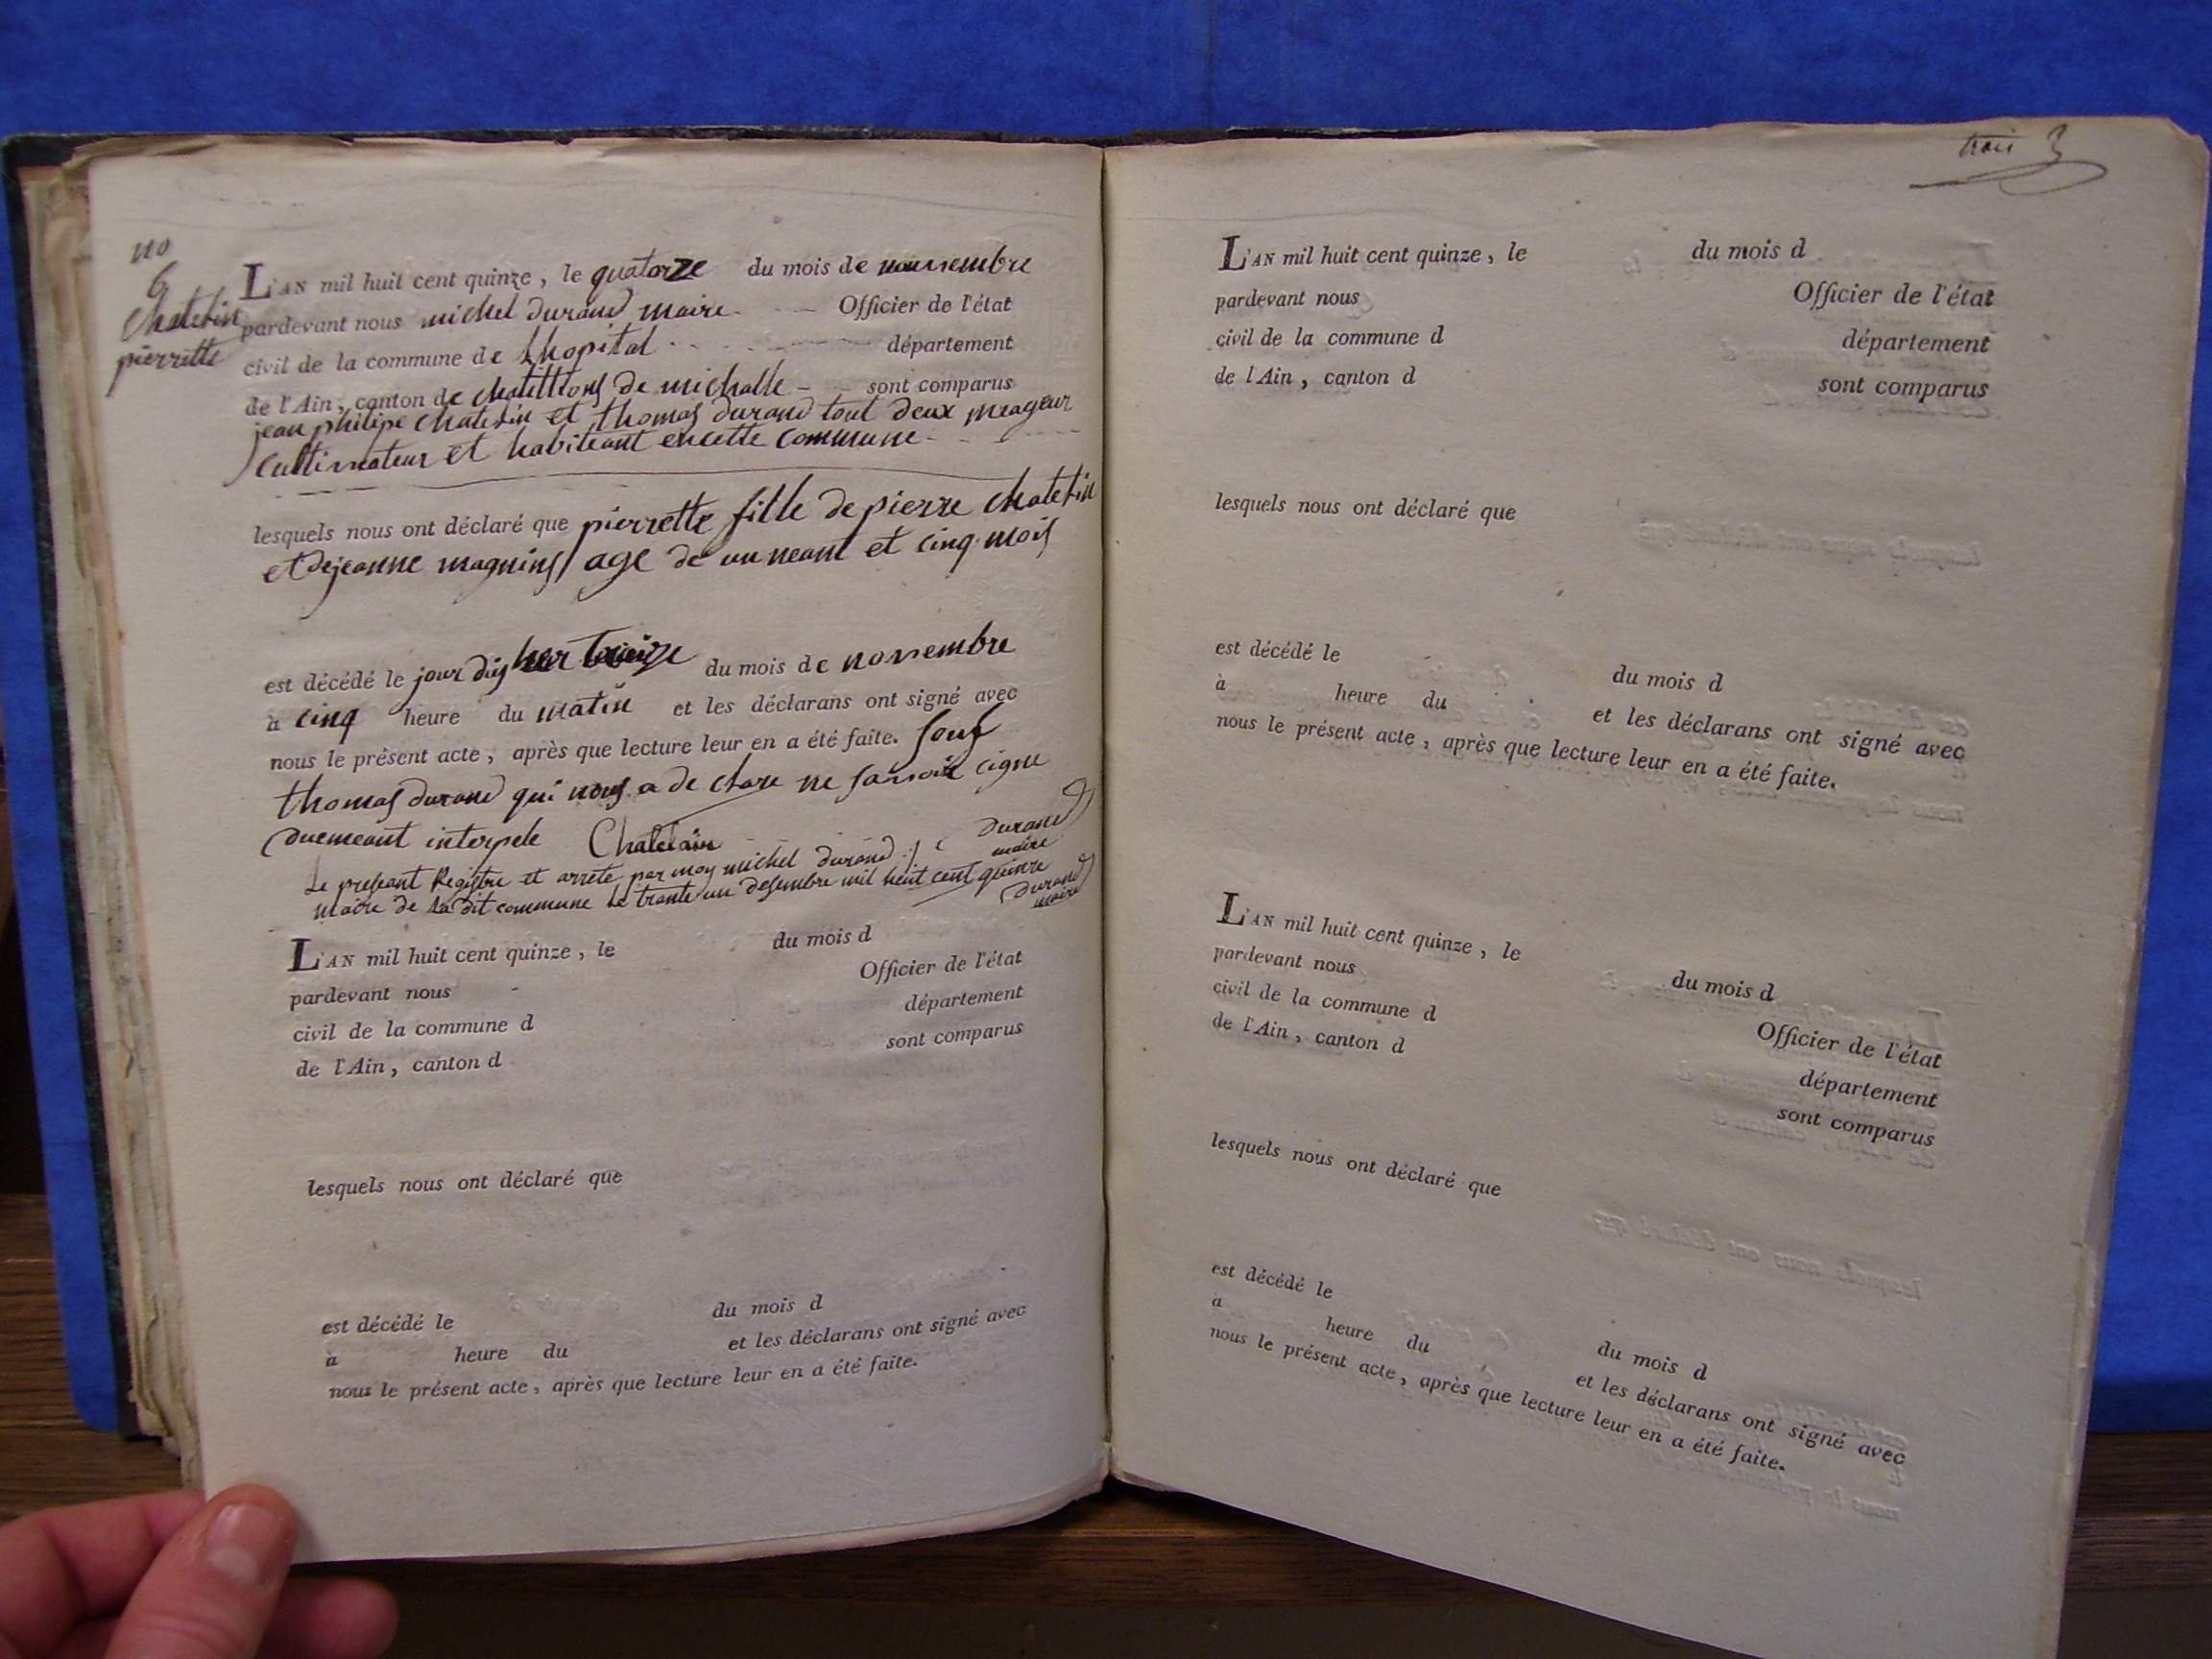 no
6
Chatelin
pierrette
L'AN mil huit cent quinze, le quatorze du mois de novembre
pardevant nous michel durand maire Officier de l'état
civil de la commune de Lhopital département
de l'Ain, canton de chatillions de michalle sont comparus
jean philipe chatelin et thomas durand tout deux mageur
cultivateur et habiteant en cette commune
lesquels nous ont déclaré que pierrette fille de pierre chatelin
et de jeanne magnins age de un neant et cinq mois
est décédé le jour du mois de novembre
à cinq heure du matin et les déclarans ont signé avec
nous le présent acte, après que lecture leur en a été faite. souf
thomas durand qui nous a de clare ne savoir cigne
duemeant interpele Chatelain durand
maire
Le preseant Registre et arrete par moy michel durand
maire de la dit commune le trante un desembre mil heut cent quinze
durand
maire
L'AN mil huit cent quinze, le du mois d
pardevant nous Officier de l'état
civil de la commune d département
de l'Ain, canton d sont comparus
lesquels nous ont déclaré que
est décédé le du mois d
à heure du et les déclarans ont signé avec
nous le présent acte, après que lecture leur en a été faite.
trois 3
L'AN mil huit cent quinze, le du mois d
pardevant nous Officier de l'état
civil de la commune d département
de l'Ain, canton d sont comparus
lesquels nous ont déclaré que
est décédé le du mois d
à heure du et les déclarans ont signé avec
nous le présent acte, après que lecture leur en a été faite.
L'AN mil huit cent quinze, le du mois d
pardevant nous Officier de l'état
civil de la commune d département
de l'Ain, canton d sont comparus
lesquels nous ont déclaré que
est décédé le du mois d
à heure du et les déclarans ont signé avec
nous le présent acte, après que lecture leur en a été faite.